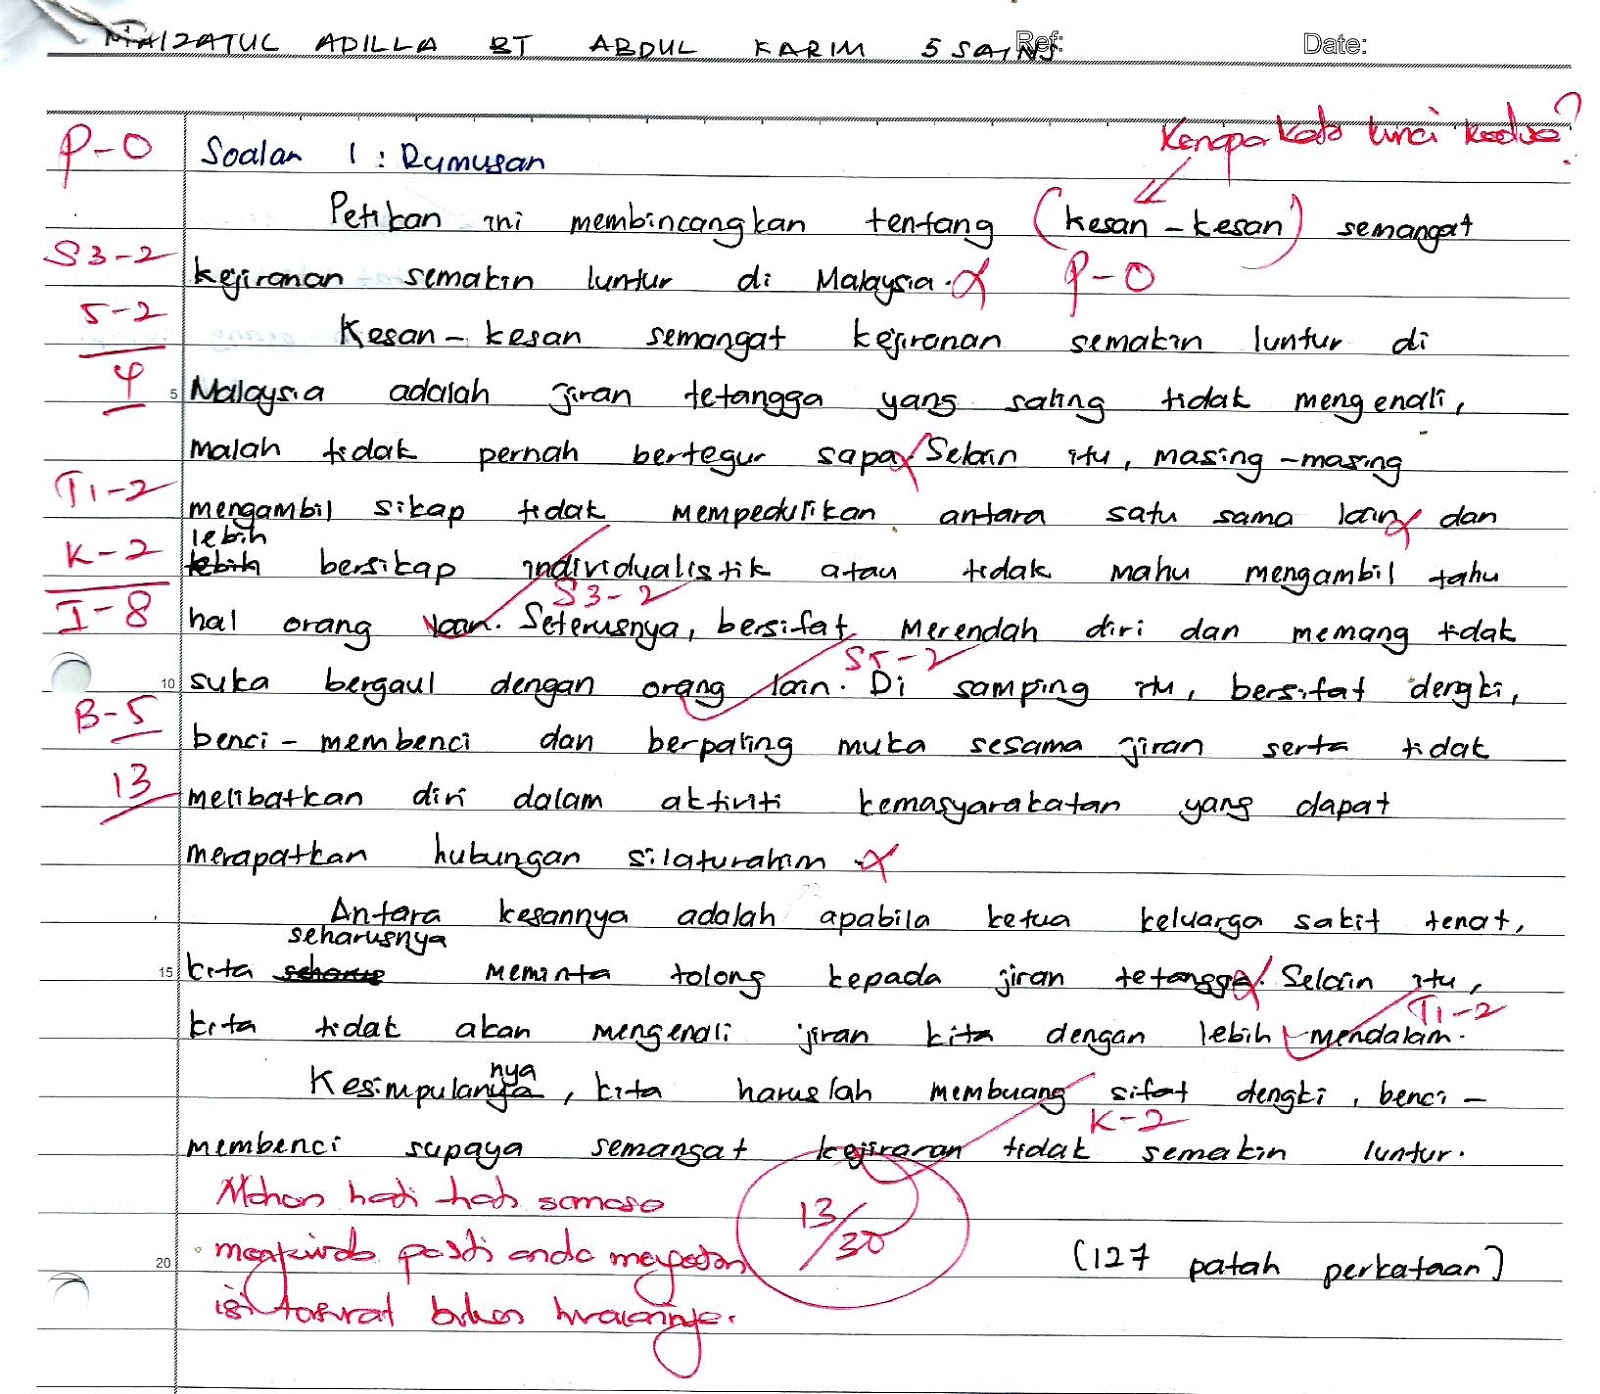 MAIZATUL ADILLA BT ABDUL KARIM 5 SAINS Ref: Date:
Kenapa kata kunci kedua?
P-0 Soalan 1 : Rumusan
Petikan ini membincangkan tentang (kesan-kesan) semangat
S3-2 kejiranan semakin luntur di Malaysia. P-0
5-2 Kesan-kesan semangat kejiranan semakin luntur di
4 5 Malaysia adalah jiran tetangga yang saling tidak mengenali,
malah tidak pernah bertegur sapa. Selain itu, masing-masing
T1-2 mengambil sikap tidak mempedulikan antara satu sama lain dan
lebih
K-2 lebih bersikap individualistik atau tidak mahu mengambil tahu
S3-2
I-8 hal orang lain. Seterusnya, bersifat merendah diri dan memang tidak
S5-2
10 suka bergaul dengan orang lain. Di samping itu, bersifat dengki,
B-5 benci-membenci dan berpaling muka sesama jiran serta tidak
13 melibatkan diri dalam aktiviti kemasyarakatan yang dapat
merapatkan hubungan silaturahim.
Antara kesannya adalah apabila ketua keluarga sakit tenat,
seharusnya
15 kita seharus meminta tolong kepada jiran tetangga. Selain itu,
T1-2
kita tidak akan mengenali jiran kita dengan lebih mendalam.
nya
Kesimpulanya, kita haruslah membuang sifat dengki, benci-
K-2
membenci supaya semangat kejiranan tidak semakin luntur.
Mohon hati-hati semasa
13/30
20 pasti anda isi tersurat bukan huraiannya.
(127 patah perkataan)